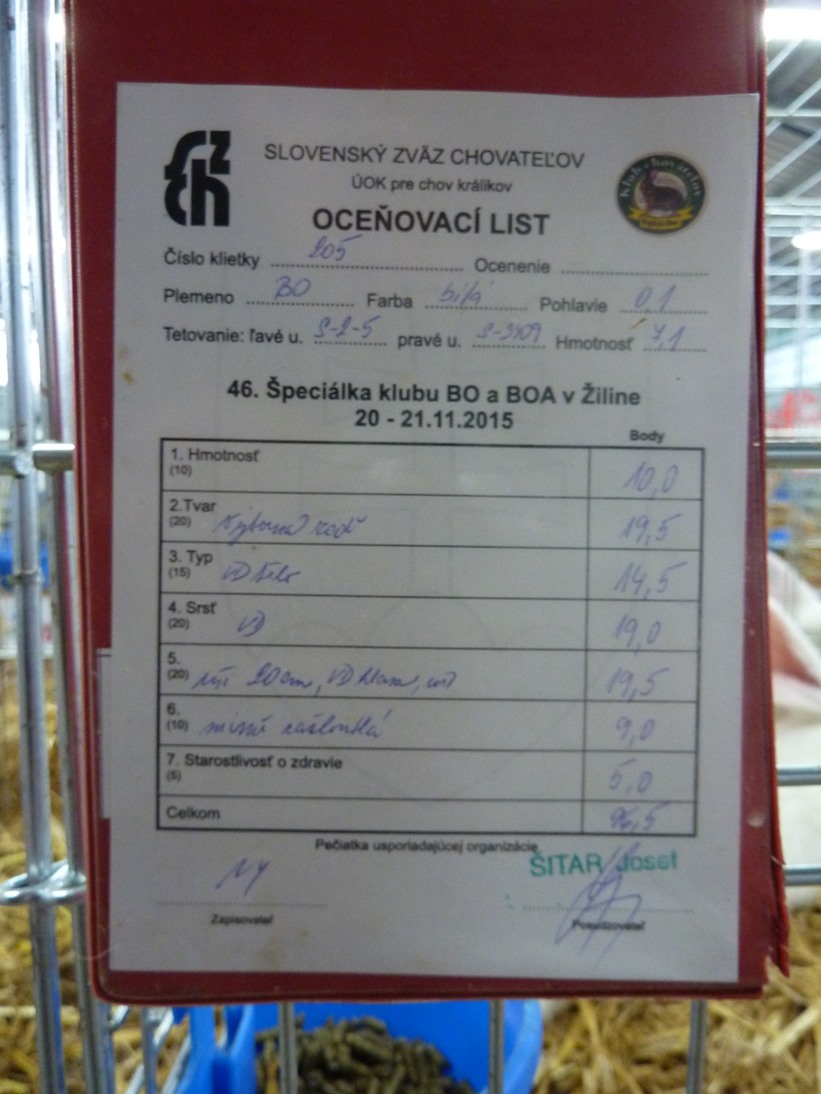 SLOVENSKÝ ZVÄZ CHOVATEĽOV
ÚOK pre chov králikov
OCEŇOVACÍ LIST
Klub chovateľov
Číslo klietky 205 Ocenenie
Plemeno BO Farba bílá Pohlavie 0,1
Tetovanie: ľavé u. S-2-5 pravé u. S-3109 Hmotnosť 7,1
46. Špeciálka klubu BO a BOA v Žiline
20 - 21.11.2015
Body
1. Hmotnosť (10) 10,0
2.Tvar (20) 19,5
3. Typ (15) VD tělo 14,5
4. Srsť (20) VD 19,0
5. (20) uši 20cm, VD 19,5
6. (10) mírně zažloutlá 9,0
7. Starostlivosť o zdravie (5) 5,0
Celkom 96,5
Pečiatka usporiadajúcej organizácie
ŠITAR Josef
Zapisovateľ Posudzovateľ